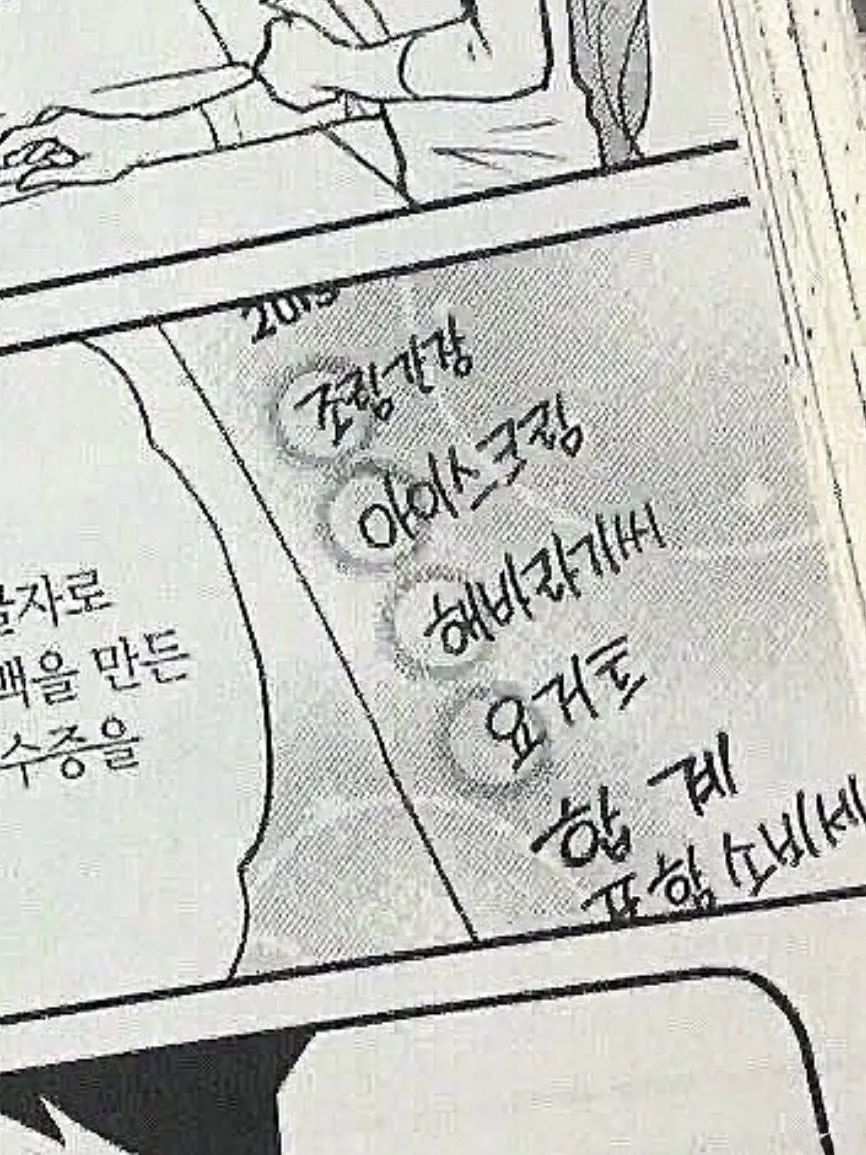 자로
백을 만든
수증을
2013
조림간장
아이스크림
해바라기씨
요거트
합 계
포함 소비세